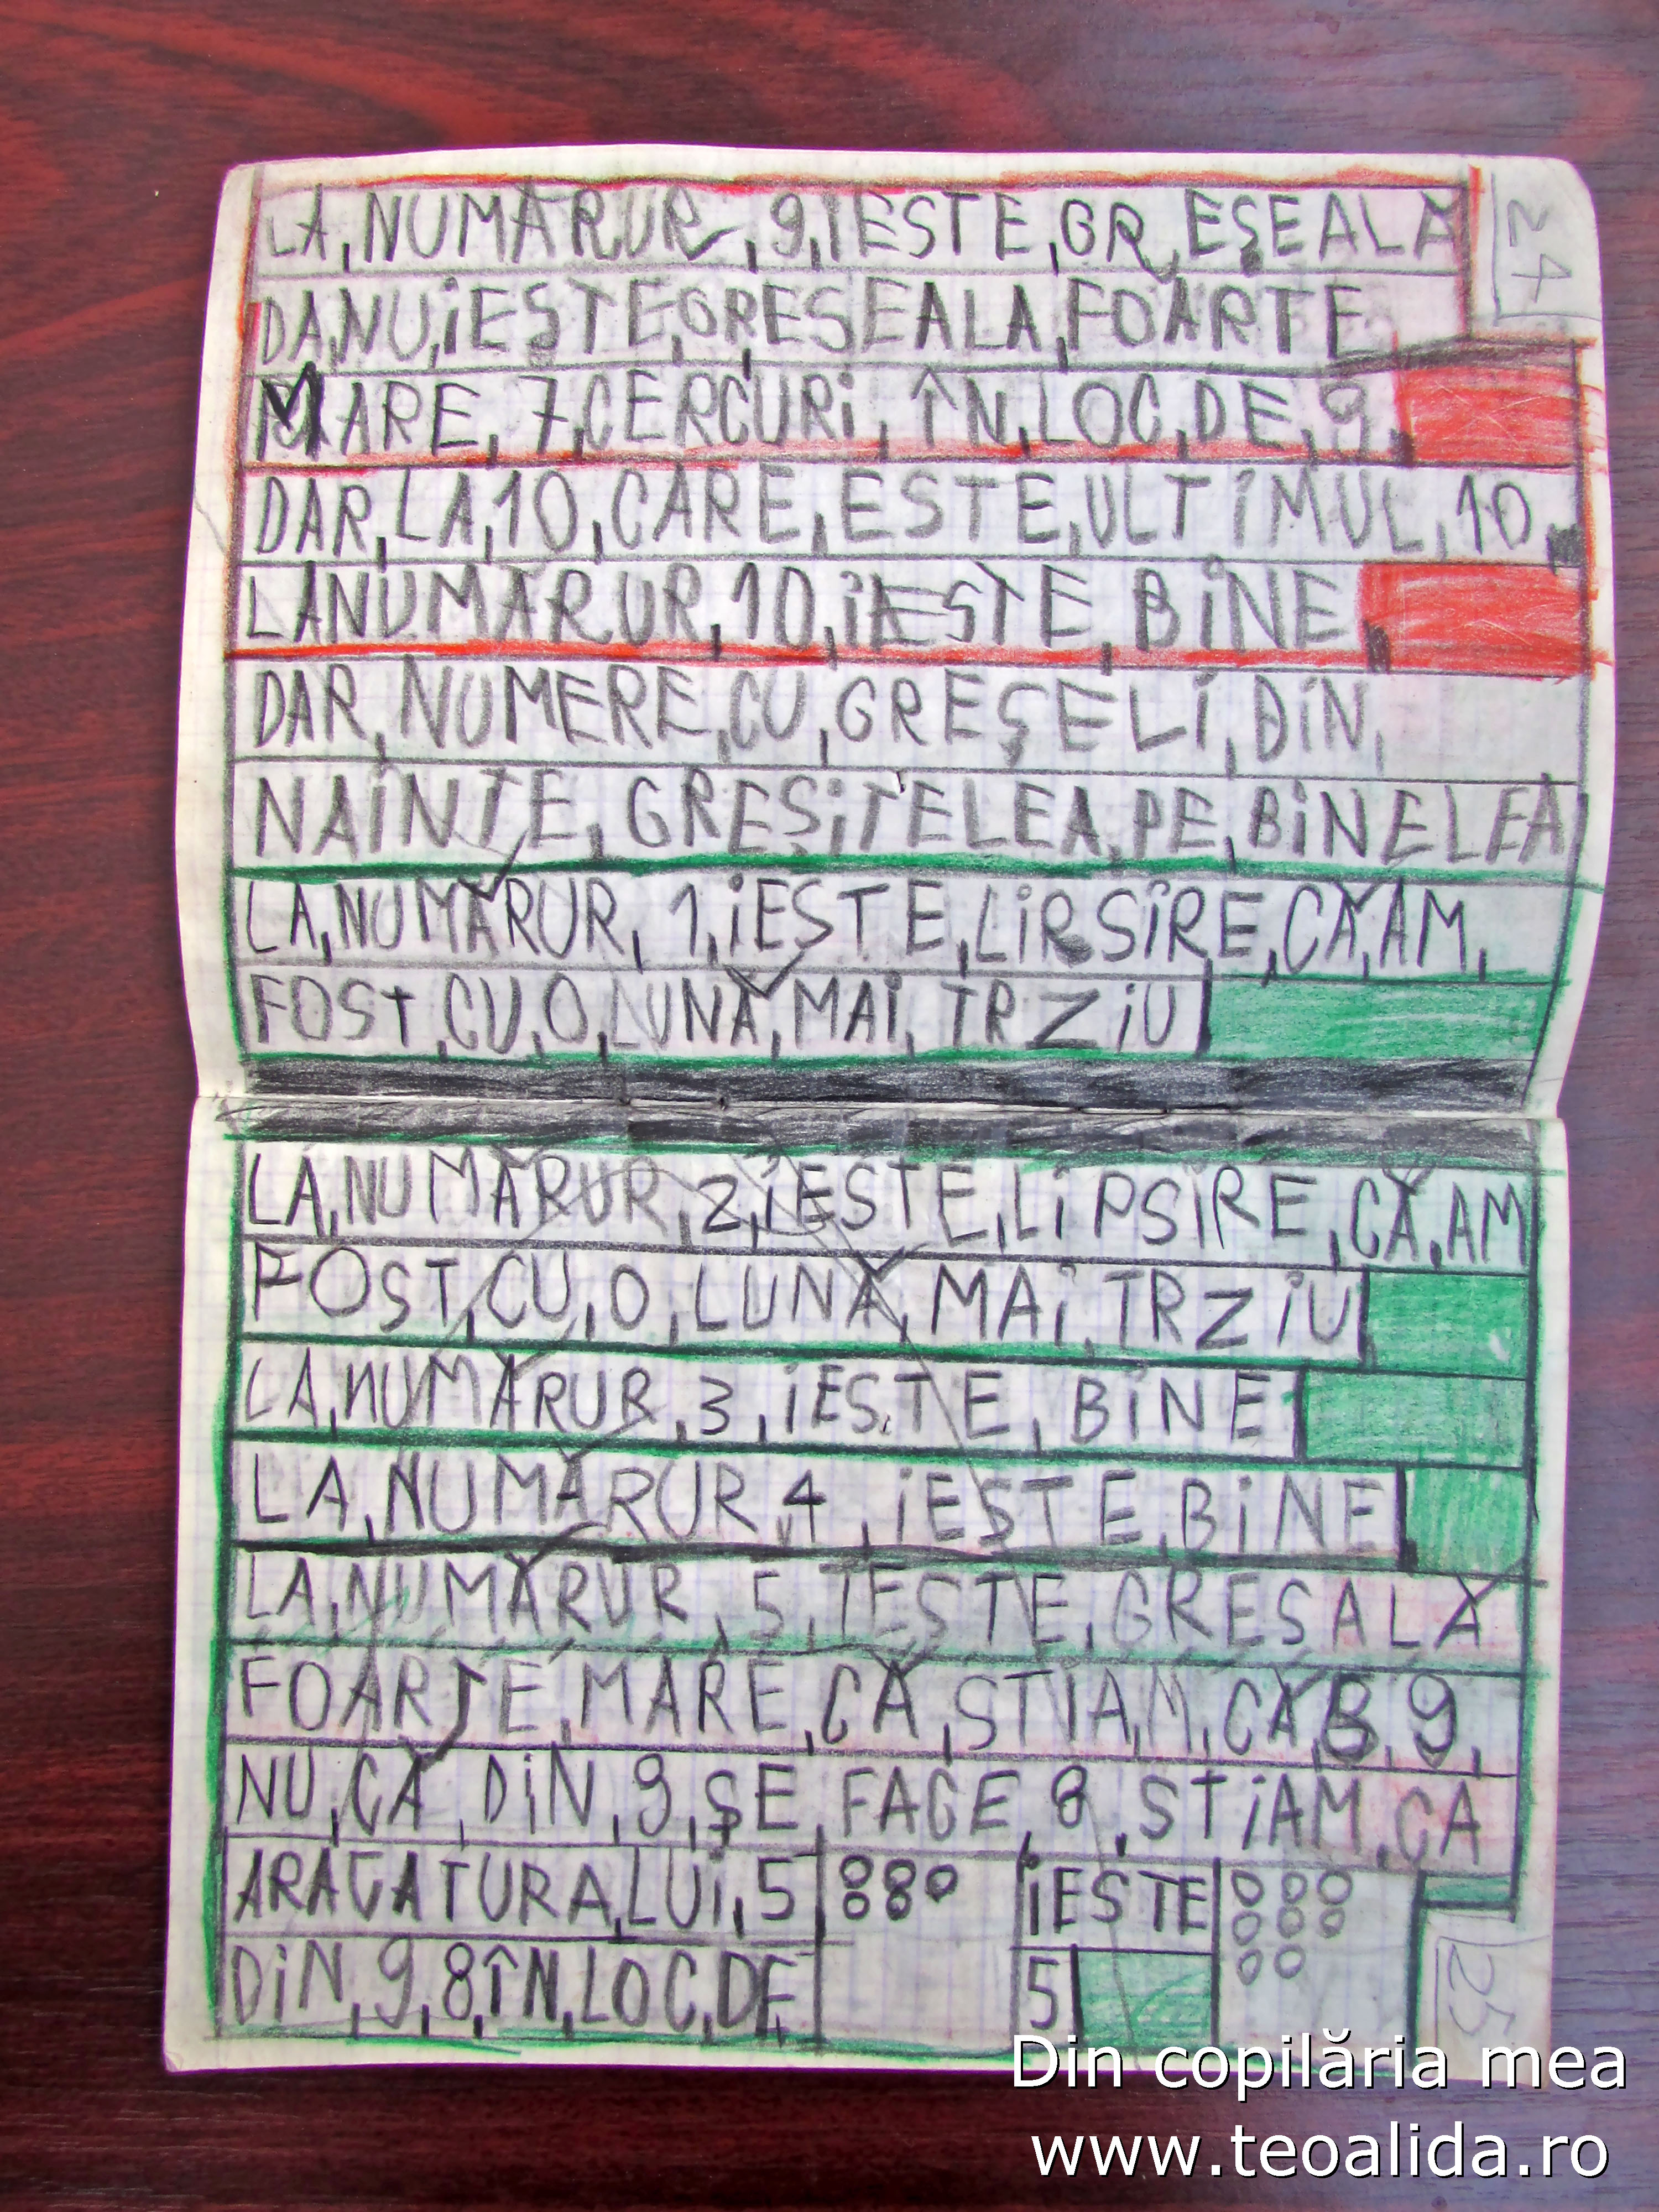 LA,NUMĂRUR,9,IESTE,GR,EŞEALĂ
24
DA,NU,iEŞTE,GREŞEALA,FOARTE
MARE,7,CERCURi,ÎN,LOC,DE,9,
DAR,LA,10,CARE,ESTE,ULTiMUL,10,
LANUMĂRUR,10,iESTE,BiNE,
DAR,NUMERE,CU,GREŞELi,DiN,
NAiNTE,GREŞiTELEA,PE,BiNELEA
LA,NUMĂRUR,1,iESTE,LiRSÎRE,CĂ,AM,
FOST,CU,O,LUNĂ,MAi,TRZiU
LA,NUMĂRUR,2,iESTE,Li PSÎRE,CĂ,AM
FOST,CU,O,LUNĂ,MAi,TRZiU
LA,NUMĂRUR,3,iESTE,BiNE
LA,NUMĂRUR,4,iESTE,BiNE
LA,NUMĂRUR,5,IESTE,GREŞALĂ
FOARTE,MARE,CĂ,STIAM,CĂ,5,9,
NU,CĂ,DiN,9,ŞE,FACE,8,STiAM,CA
ARACATURA,LUi,5 iESTE
DiN,9,8ÎN,LOC,DE, 5
25
Din copilăria mea
www.teoalida.ro